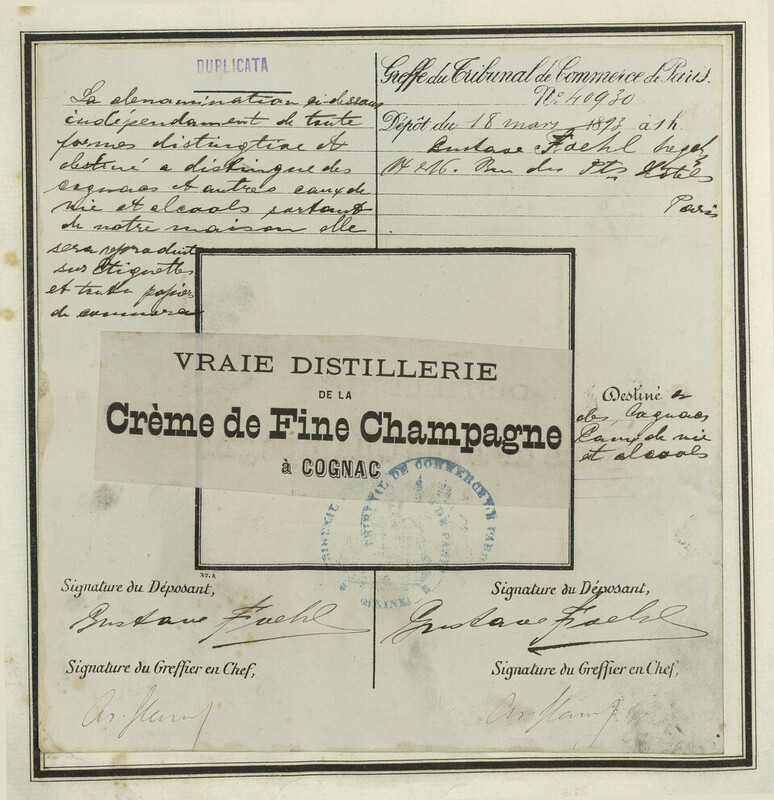 DUPLICATA
La denamination ci dessous
indépendament de toute
formes distinctive et
destiné a distingue des
cognacs et autres eaux de
vie et alcools portant
de notre maison elle
sera reproduite
sur étiquettes
et toutes papiers
de commerce
Greffe du Tribunal de Commerce de Paris.
N° 40930
Dépôt du 18 mars 1893 à 1h
Gustave Foehl
14 & 16. Rue des Pts Hôtels
Paris
VRAIE DISTILLERIE
DE LA
Crème de Fine Champagne
à COGNAC
Destiné a
des Cognacs
Eaux de vie
et alcools
TRIBUNAL DE COMMERCE DE PARIS
(SEINE)
Signature du Déposant,
Gustave Foehl
Signature du Greffier en Chef,
Signature du Déposant,
Gustave Foehl
Signature du Greffier en Chef,